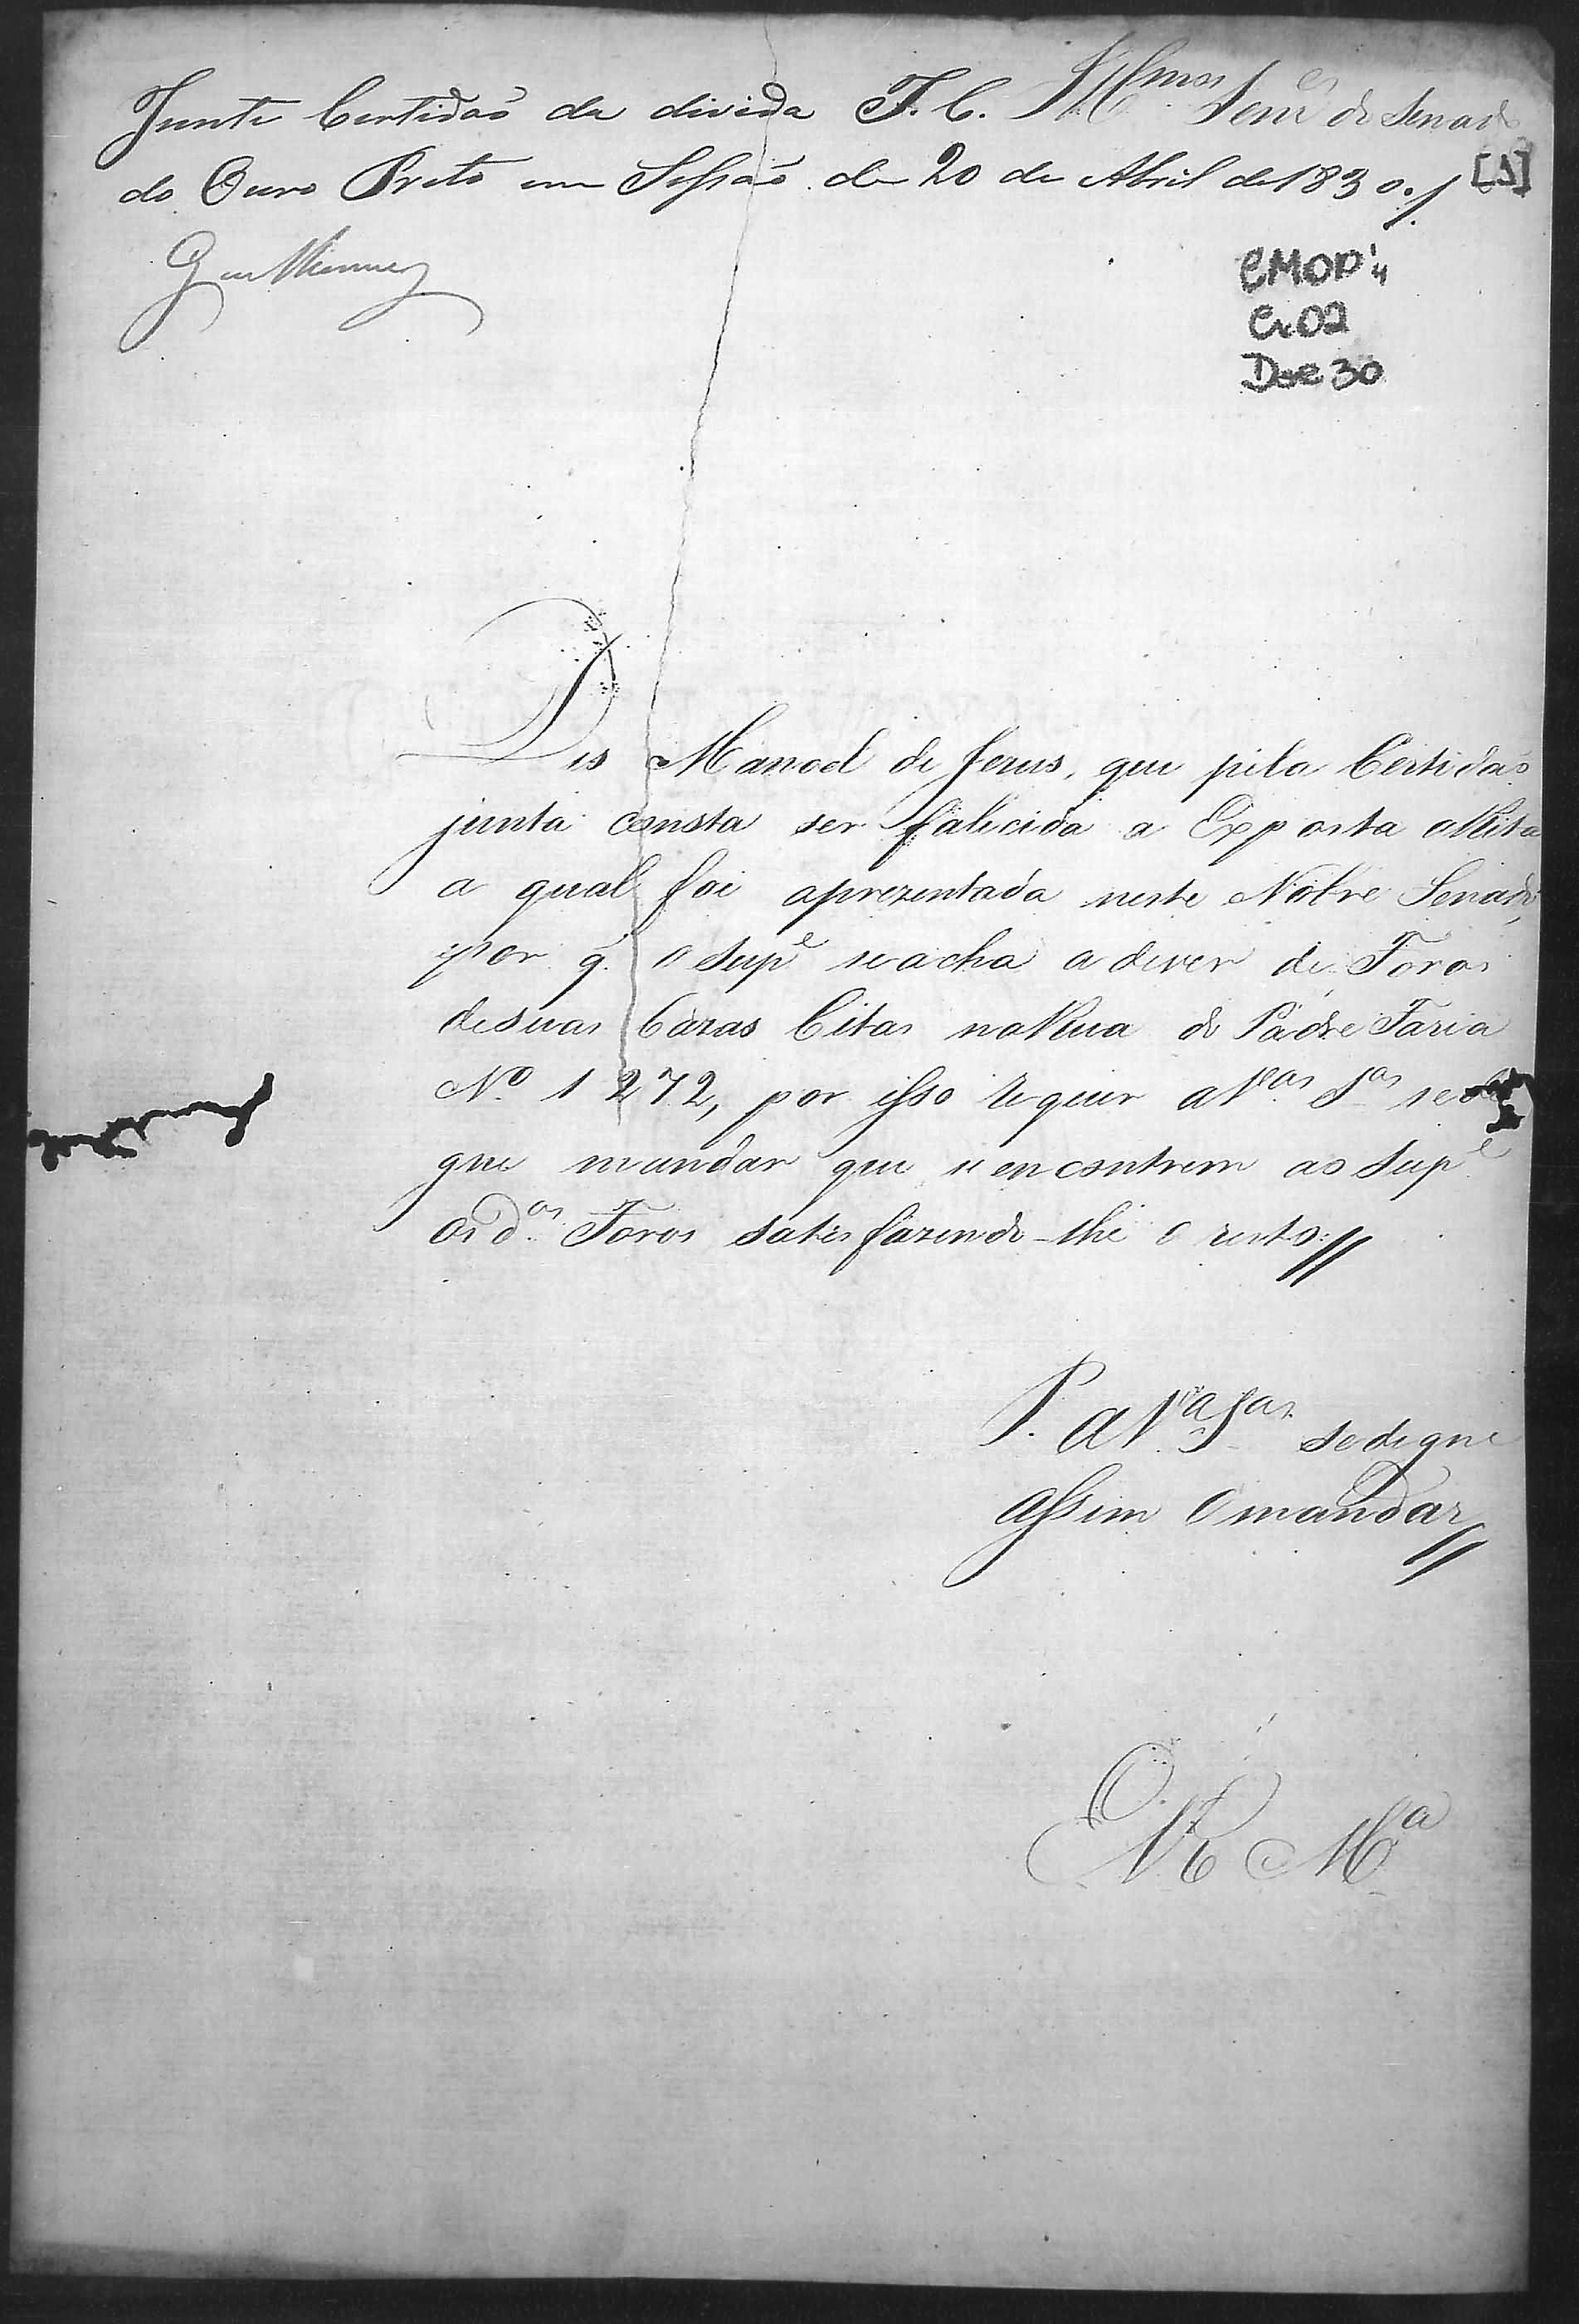 Junte Certidaõ da divida F. C. Ill.mos Sen.es do Senado
do Ouro Preto em Sessaõ de 20 de Abril de 1830./.
[1]
CMOP
Cx 02
Doc 30
Dis Manoel de Jezus, que pela Certidaõ
junta consta ser falicida a Exposta Rita
a qual foi aprezentada neste Nobre Senado,
por q. o Sup.e se acha a dever de Foros
de suas Cazas Citas na Rua do Padre Faria
N.º 1272, por isso requer a V.as S.as se di
gne mandar que se encontrem ao Sup.e
os d.os Foros satisfazendo-lhe o resto //
P. a V.as S.as se digne
assim o mandar //
E. R. M.a